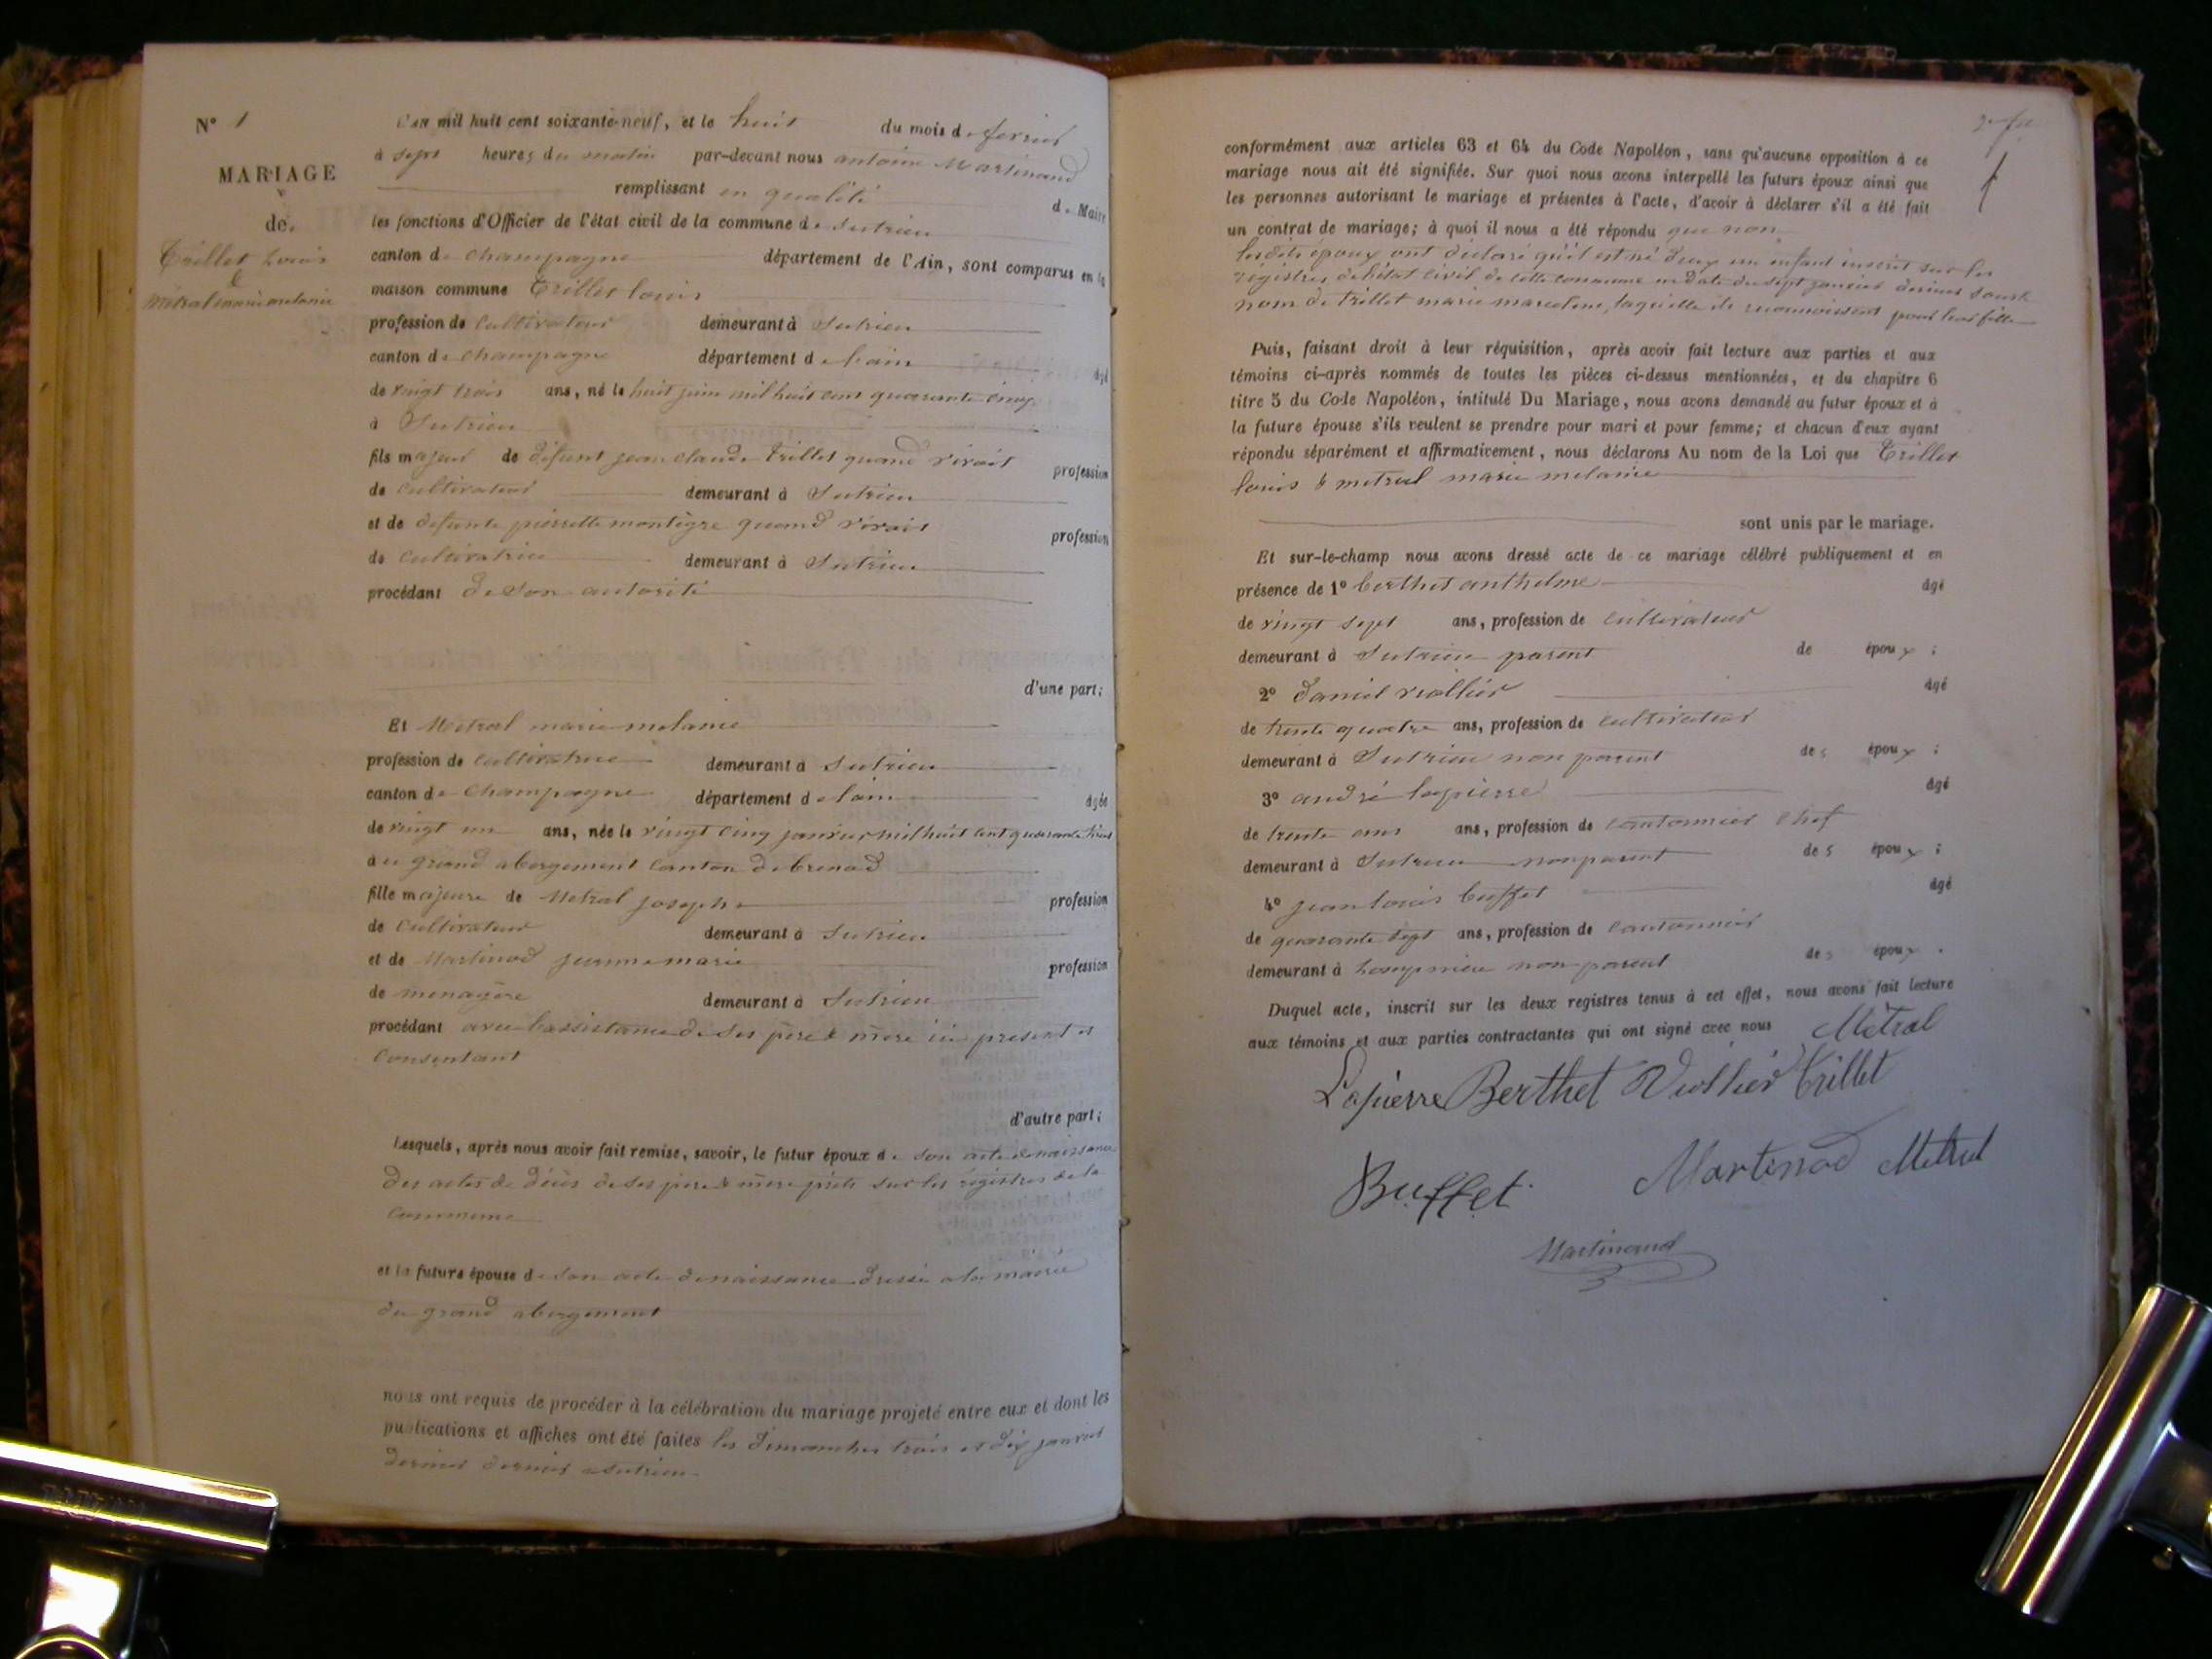 N° 1
MARIAGE
de
Trillet Louis
&
métral marie melanie
L'an mil huit cent soixante-neuf, et le huit du mois de fevrier
à sept heures du matin par-devant nous antoine Martinand
remplissant en qualité de Maire
les fonctions d'Officier de l'état civil de la commune de Sutrieu
canton de champagne département de l'Ain, sont comparus en la
maison commune Trillet louis
profession de cultivateur demeurant à Sutrieu
canton de champagne département de lain âgé
de vingt trois ans, né le huit juin mil huit cent quarante cinq
à Sutrieu
fils majeur de défunt jean claude Trillet quand vivait profession
de cultivateur demeurant à Sutrieu
et de defunte pierrette montègre quand vivait profession
de cultivatrice demeurant à Sutrieu
procédant de son autorité
d'une part;
Et Métral marie melanie
profession de cultivatrice demeurant à Sutrieu
canton de champagne département de lain âgée
de vingt un ans, née le vingt cinq janvier mil huit cent quarante huit
au grand abergement canton de brenod
fille majeure de Metral joseph profession
de cultivateur demeurant à Sutrieu
et de Martinod jeanne marie profession
de menagère demeurant à Sutrieu
procédant avec lassistance de ses père & mère ici present et
consentant
d'autre part;
Lesquels, après nous avoir fait remise, savoir, le futur époux de son acte de naissance
des actes de décès de ses père & mère sur les régistres de la
commune
et la future épouse de son acte de naissance dressé a la mairie
du grand abergement
nous ont requis de procéder à la célébration du mariage projeté entre eux et dont les
publications et affiches ont été faites les dimanches trois et dix janvier
dernier dernier a Sutrieu
conformément aux articles 63 et 64 du Code Napoléon, sans qu'aucune opposition à ce
mariage nous ait été signifiée. Sur quoi nous avons interpellé les futurs époux ainsi que
les personnes autorisant le mariage et présentes à l'acte, d'avoir à déclarer s'il a été fait
un contrat de mariage; à quoi il nous a été répondu que non
les dits époux ont déclaré qu'il est né deux un enfant inscrit sur les
régistres de létat civil de cette commune en date du sept janvier dernier sous le
nom de trillet marie marceline, laquelle ils reconnoissent pour leur fille
Puis, faisant droit à leur réquisition, après avoir fait lecture aux parties et aux
témoins ci-après nommés de toutes les pièces ci-dessus mentionnées, et du chapitre 6
titre 5 du Code Napoléon, intitulé Du Mariage, nous avons demandé au futur époux et à
la future épouse s'ils veulent se prendre pour mari et pour femme; et chacun d'eux ayant
répondu séparément et affirmativement, nous déclarons Au nom de la Loi que Trillet
louis & metral marie melanie
sont unis par le mariage.
Et sur-le-champ nous avons dressé acte de ce mariage célébré publiquement et en
présence de 1° berthet anthelme âgé
de vingt sept ans, profession de cultivateur
demeurant à Sutrieu parent de époux ;
2° daniel viollier âgé
de trente quatre ans, profession de cultivateur
demeurant à Sutrieu non parent des époux ;
3° andré lapierre âgé
de trente ans ans, profession de cantonnier chef
demeurant à Sutrieu non parent des époux ;
4° jean louis buffet âgé
de quarante sept ans, profession de cantonnier
demeurant à Lompnieu non parent des époux .
Duquel acte, inscrit sur les deux registres tenus à cet effet, nous avons fait lecture
aux témoins et aux parties contractantes qui ont signé avec nous Métral
Lapierre Berthet Viollier Trillet
Buffet Martinod Métral
Martinand